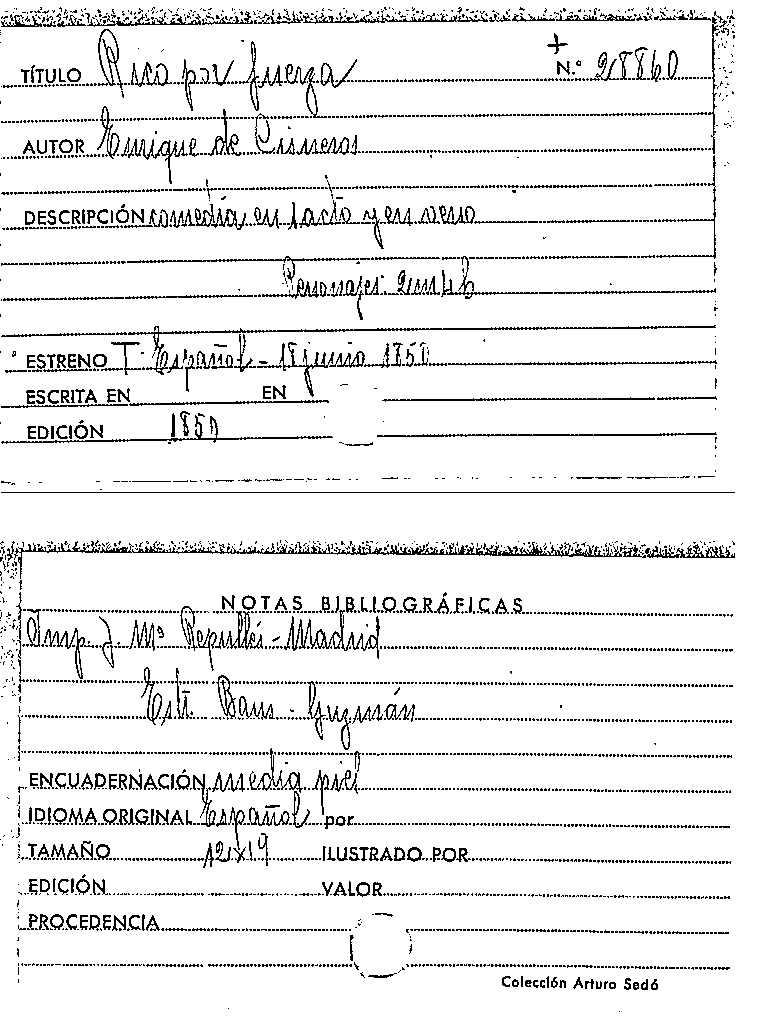 TÍTULO Rico por fuerza + N.º 28860
AUTOR Enrique de Cisneros
DESCRIPCIÓN comedia en 1 acto y en verso
Personajes: 2m 4h
ESTRENO T. Español - 18 junio 1850
ESCRITA EN EN
EDICIÓN 1850
NOTAS BIBLIOGRÁFICAS
Imp. J. Mª Repullés - Madrid
Estr. Baus - Guzmán
ENCUADERNACIÓN media piel
IDIOMA ORIGINAL Español por
TAMAÑO 12x19 ILUSTRADO POR
EDICIÓN VALOR
PROCEDENCIA
Colección Arturo Sedó